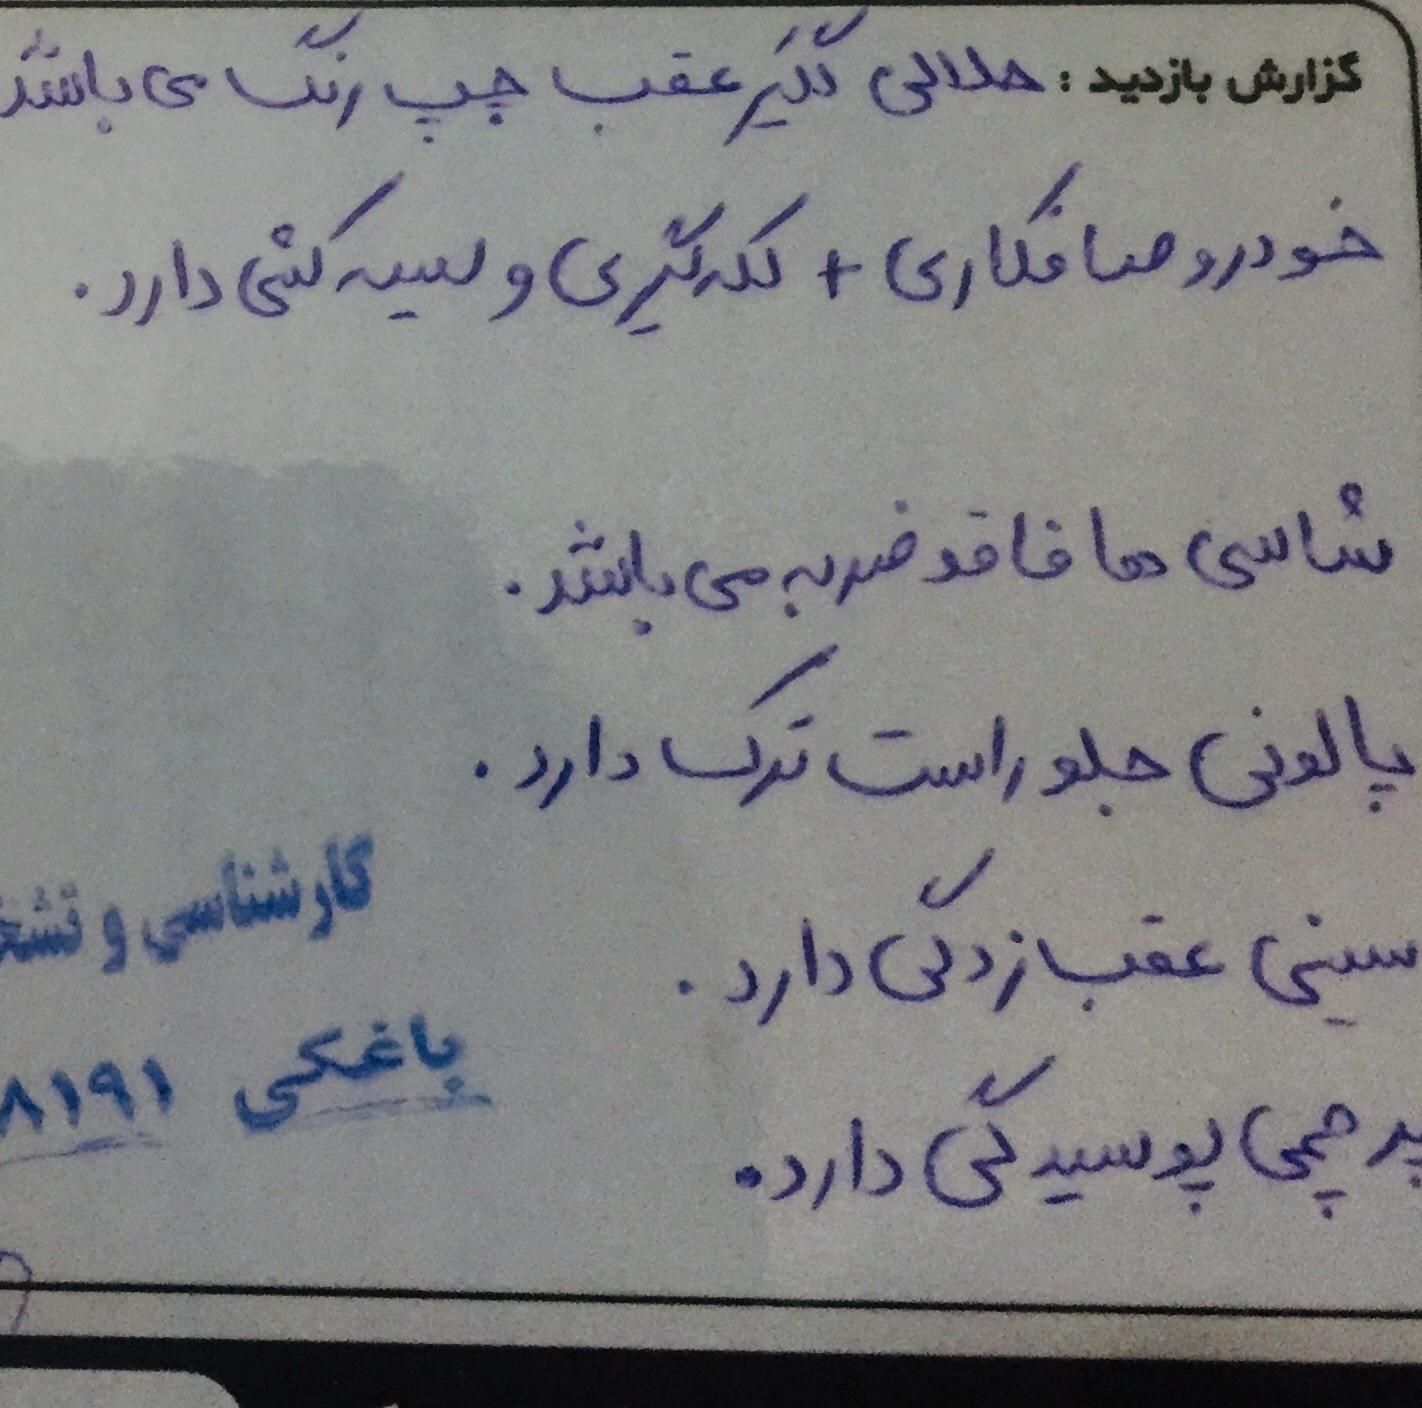 گزارش بازدید : هلالی گلگیر عقب چپ رنگ می باشد
خودرو صافکاری + لکه گیری و لیسه کشی دارد .
شاسی ها فاقد ضربه می باشد .
پالونی جلو راست ترک دارد .
سینی عقب زدگی دارد .
پرچمی پوسیدگی دارد .
کارشناسی و تشخ
باغکی ۸۱۹۱